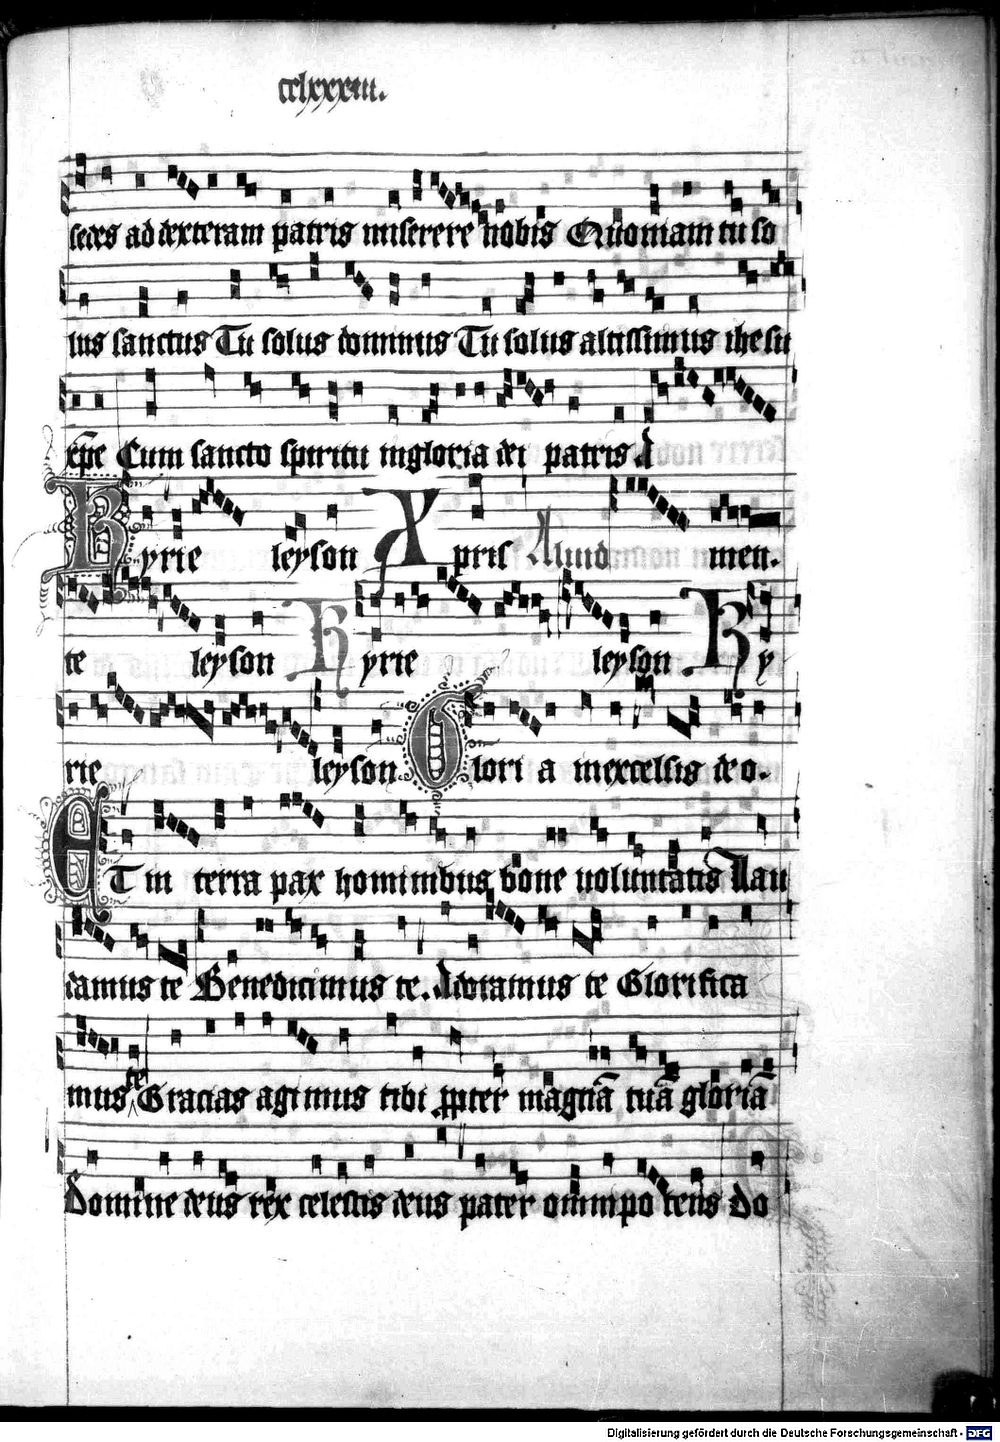 cclxxxiii.
sedes ad dexteram patris miserere nobis Quoniam tu so
lus sanctus Tu solus dominus Tu solus altissimus ihesu
xp̄e Cum sancto spiritu in gloria dei patris A
Kyrie leyson Xpris Aliud men.
te leyson Kyrie leyson Ky
rie leyson Gloria in excelsis deo.
ET in terra pax hominibus bone voluntatis Lau
damus te Benedicimus te. Adoramus te Glorifica
mus te Gracias agimus tibi ꝓpter magnā tuā gloriā
Domine deus rex celestis deus pater omnipotens do
Digitalisierung gefördert durch die Deutsche Forschungsgemeinschaft - DFG